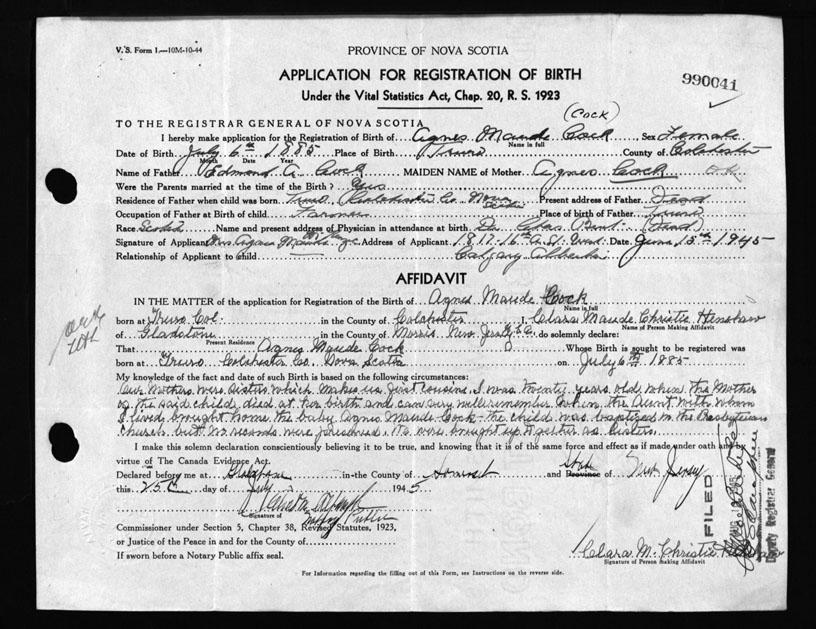 V. S. Form 1.—10M-10-44
PROVINCE OF NOVA SCOTIA
APPLICATION FOR REGISTRATION OF BIRTH
990041
Under the Vital Statistics Act, Chap. 20, R. S. 1923
(Cock)
TO THE REGISTRAR GENERAL OF NOVA SCOTIA
I hereby make application for the Registration of Birth of Agnes Maude Cock Sex Female
Name in full
Date of Birth July 6th 1885 Place of Birth Truro County of Colchester
Month Date Year
Name of Father Edmond A. Cock MAIDEN NAME of Mother Agnes Cock
Were the Parents married at the time of the Birth? Yes
Residence of Father when child was born Truro Colchester Co. Nova Scotia Present address of Father Dead
Occupation of Father at Birth of child Farmer Place of birth of Father Truro
Race Scotch Name and present address of Physician in attendance at birth Dr. Chas. Bent (Dead)
Signature of Applicant Mrs Agnes Maude Address of Applicant 1817-16th A. St. West Date June 15th 1945
Relationship of Applicant to child Calgary Alberta
AFFIDAVIT
IN THE MATTER of the application for Registration of the Birth of Agnes Maude Cock
Name in full
born at Truro Col in the County of Colchester I, Clara Maude Christie Henshaw
Name of Person Making Affidavit
of Gladstone in the County of Morris New Jersey do solemnly declare:
Present Residence
That Agnes Maude Cock Whose Birth is sought to be registered was
born at Truro Colchester Co. Nova Scotia on July 6th 1885
My knowledge of the fact and date of such Birth is based on the following circumstances:
Our Mothers were sisters which makes us first cousins. I was twenty years old when the Mother
of the said child died at her birth and can very well remember when the Aunt with whom
I lived brought home the baby Agnes Maude Cock - the child was baptized in the Presbyterian
Church but no records were preserved. We were brought up together as sisters.
I make this solemn declaration conscientiously believing it to be true, and knowing that it is of the same force and effect as if made under oath and by
virtue of The Canada Evidence Act.
Declared before me at in the County of Somerset and Province of State New Jersey
this 25 day of July 1945
Signature of
Notary Public
Commissioner under Section 5, Chapter 38, Revised Statutes, 1923,
or Justice of the Peace in and for the County of
If sworn before a Notary Public affix seal.
Clara M. Christie Henshaw
Signature of Person making Affidavit
For Information regarding the filling out of this Form, see Instructions on the reverse side.
FILED
Deputy Registrar General